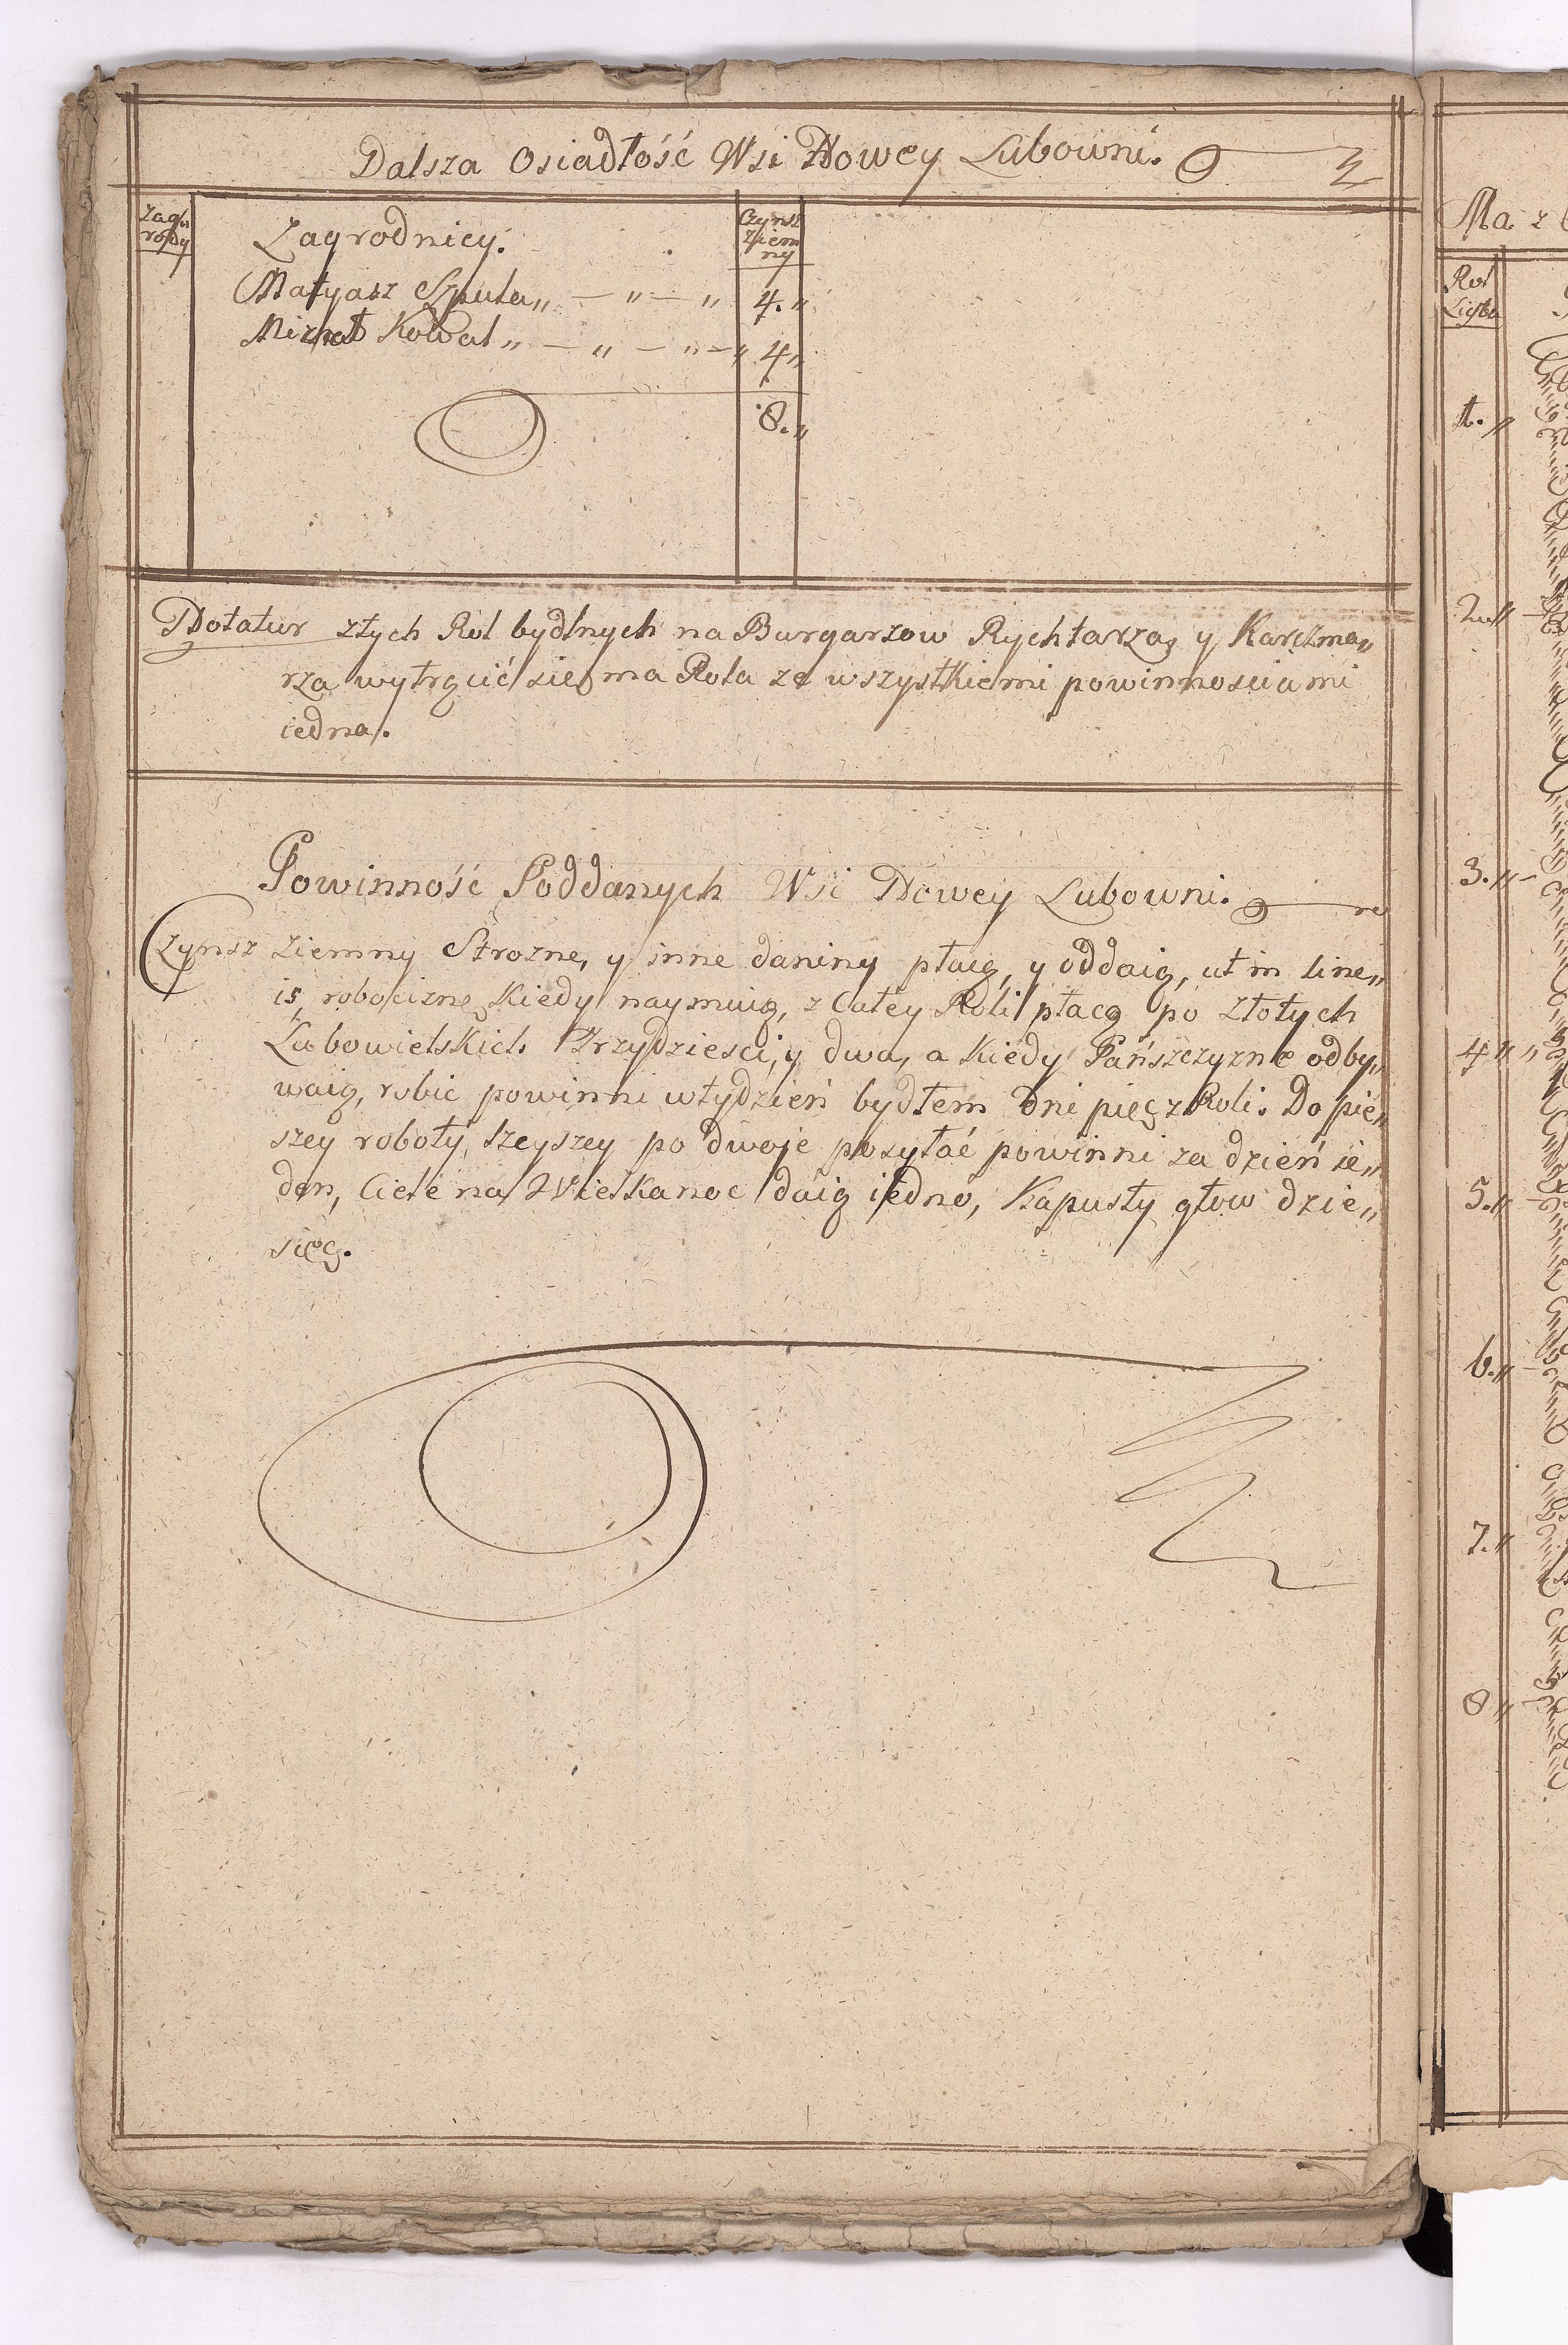 Dalsza Osiadłość Wsi Nowey Lubowni.
Zagro
rody
Zagrodnicy.
Czynsz
Ziem
ny
Matyasz Szputa „ — „ — „ 4. „
Michał Kowal „ — „ — „ — „ 4 „
8. „
Notatur z tych Rol bydlnych na Burgarzow Rychtarza, y Karczma„
rza wytrącić się ma Rola ze wszystkiemi powinnosciami
iedna.
Powinność Poddanych Wsi Nowey Lubowni.
Czynsz ziemny Strozne, y inne daniny płaią, y oddaią, ut in line„
is, robociznę kiedy naymuią, z Całey Roli płacą po złotych
Lubowielskich Trzydziesci, y dwa, a kiedy Pańszczyznę odby„
waią, robic powinni w tydzień bydłem dni pięć z Roli. Do pie„
szey roboty, szeyszey po dwoje posyłać powinni za dzień ie„
den, Ciele na Wielkanoc daią iedno, Kapusty głow dzie„
sięć.
Ma z
Rol
Liczba
1. „
2. „
3. „
4 „
5. „
6. „
7. „
8 „